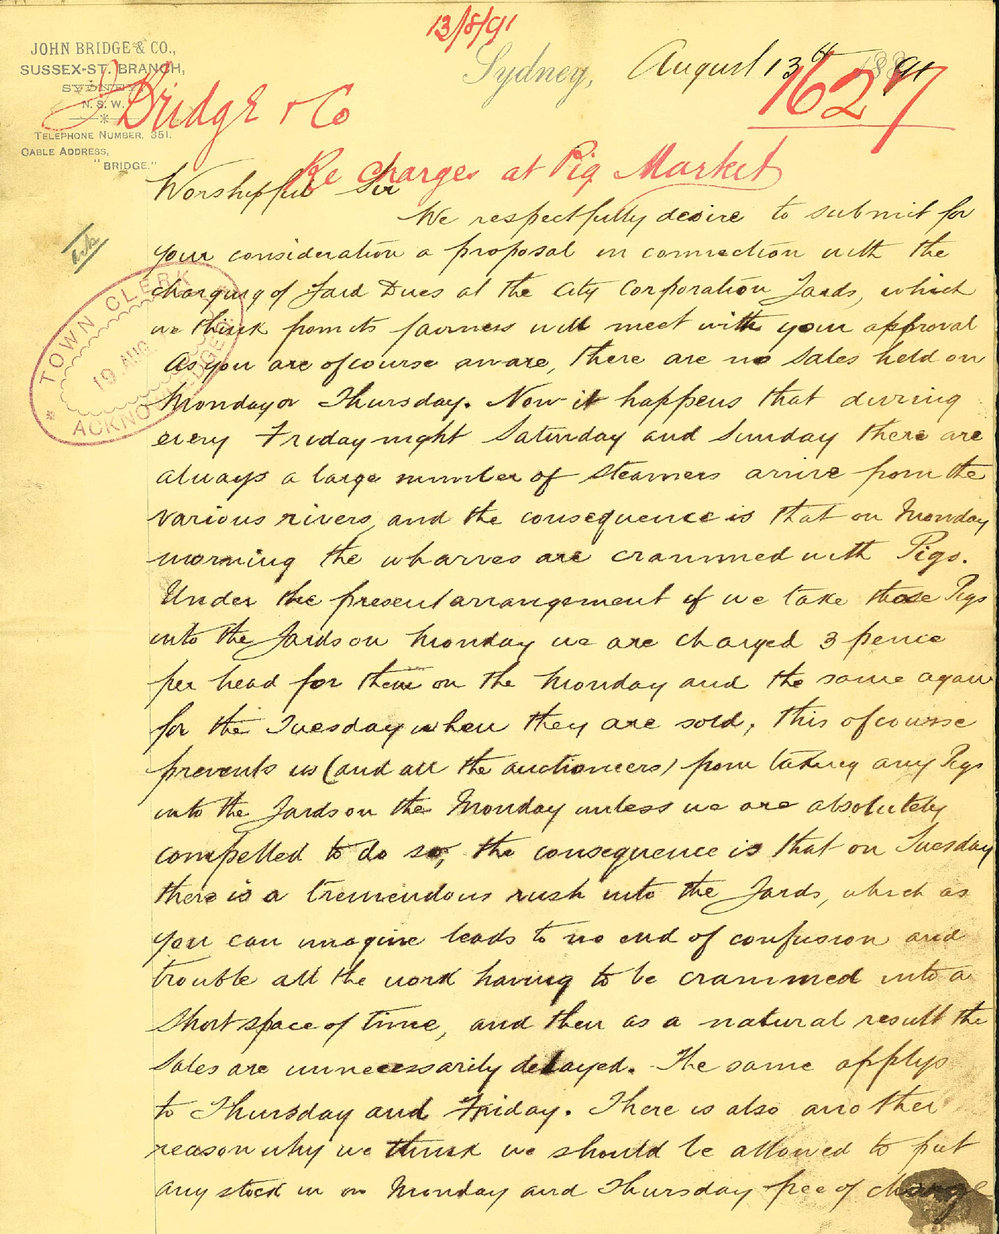 13/8/91
JOHN BRIDGE & CO.,
SUSSEX-ST. BRANCH,
SYDNEY
N. S. W.
TELEPHONE NUMBER, 351.
CABLE ADDRESS,
"BRIDGE."
Sydney, August 13th 1891
1627
J Bridge & Co
Re charges at Pig Market
ack
TOWN CLERK
19 AUG
ACKNOWLEDGED
Worshipful Sir
We respectfully desire to submit for
your consideration a proposal in connection with the
charging of Yard Dues at the City Corporation Yards, which
we think from its fairness will meet with your approval
As you are of course aware, there are no sales held on
Monday or Thursday. Now it happens that during
every Friday night Saturday and Sunday there are
always a large number of steamers arrive from the
various rivers, and the consequence is that on Monday
morning the wharves are crammed with Pigs.
Under the present arrangement if we take those Pigs
into the Yards on Monday we are charged 3 pence
per head for them on the Monday and the same again
for the Tuesday when they are sold, this of course
prevents us (and all the auctioneers) from taking any Pigs
into the Yards on the Monday unless we are absolutely
compelled to do so, the consequence is that on Tuesday
there is a tremendous rush into the Yards, which as
you can imagine leads to no end of confusion and
trouble all the work having to be crammed into a
short space of time, and then as a natural result the
Sales are unnecessarily delayed. The same applys
to Thursday and Friday. There is also another
reason why we think we should be allowed to put
any stock in on Monday and Thursday free of charge